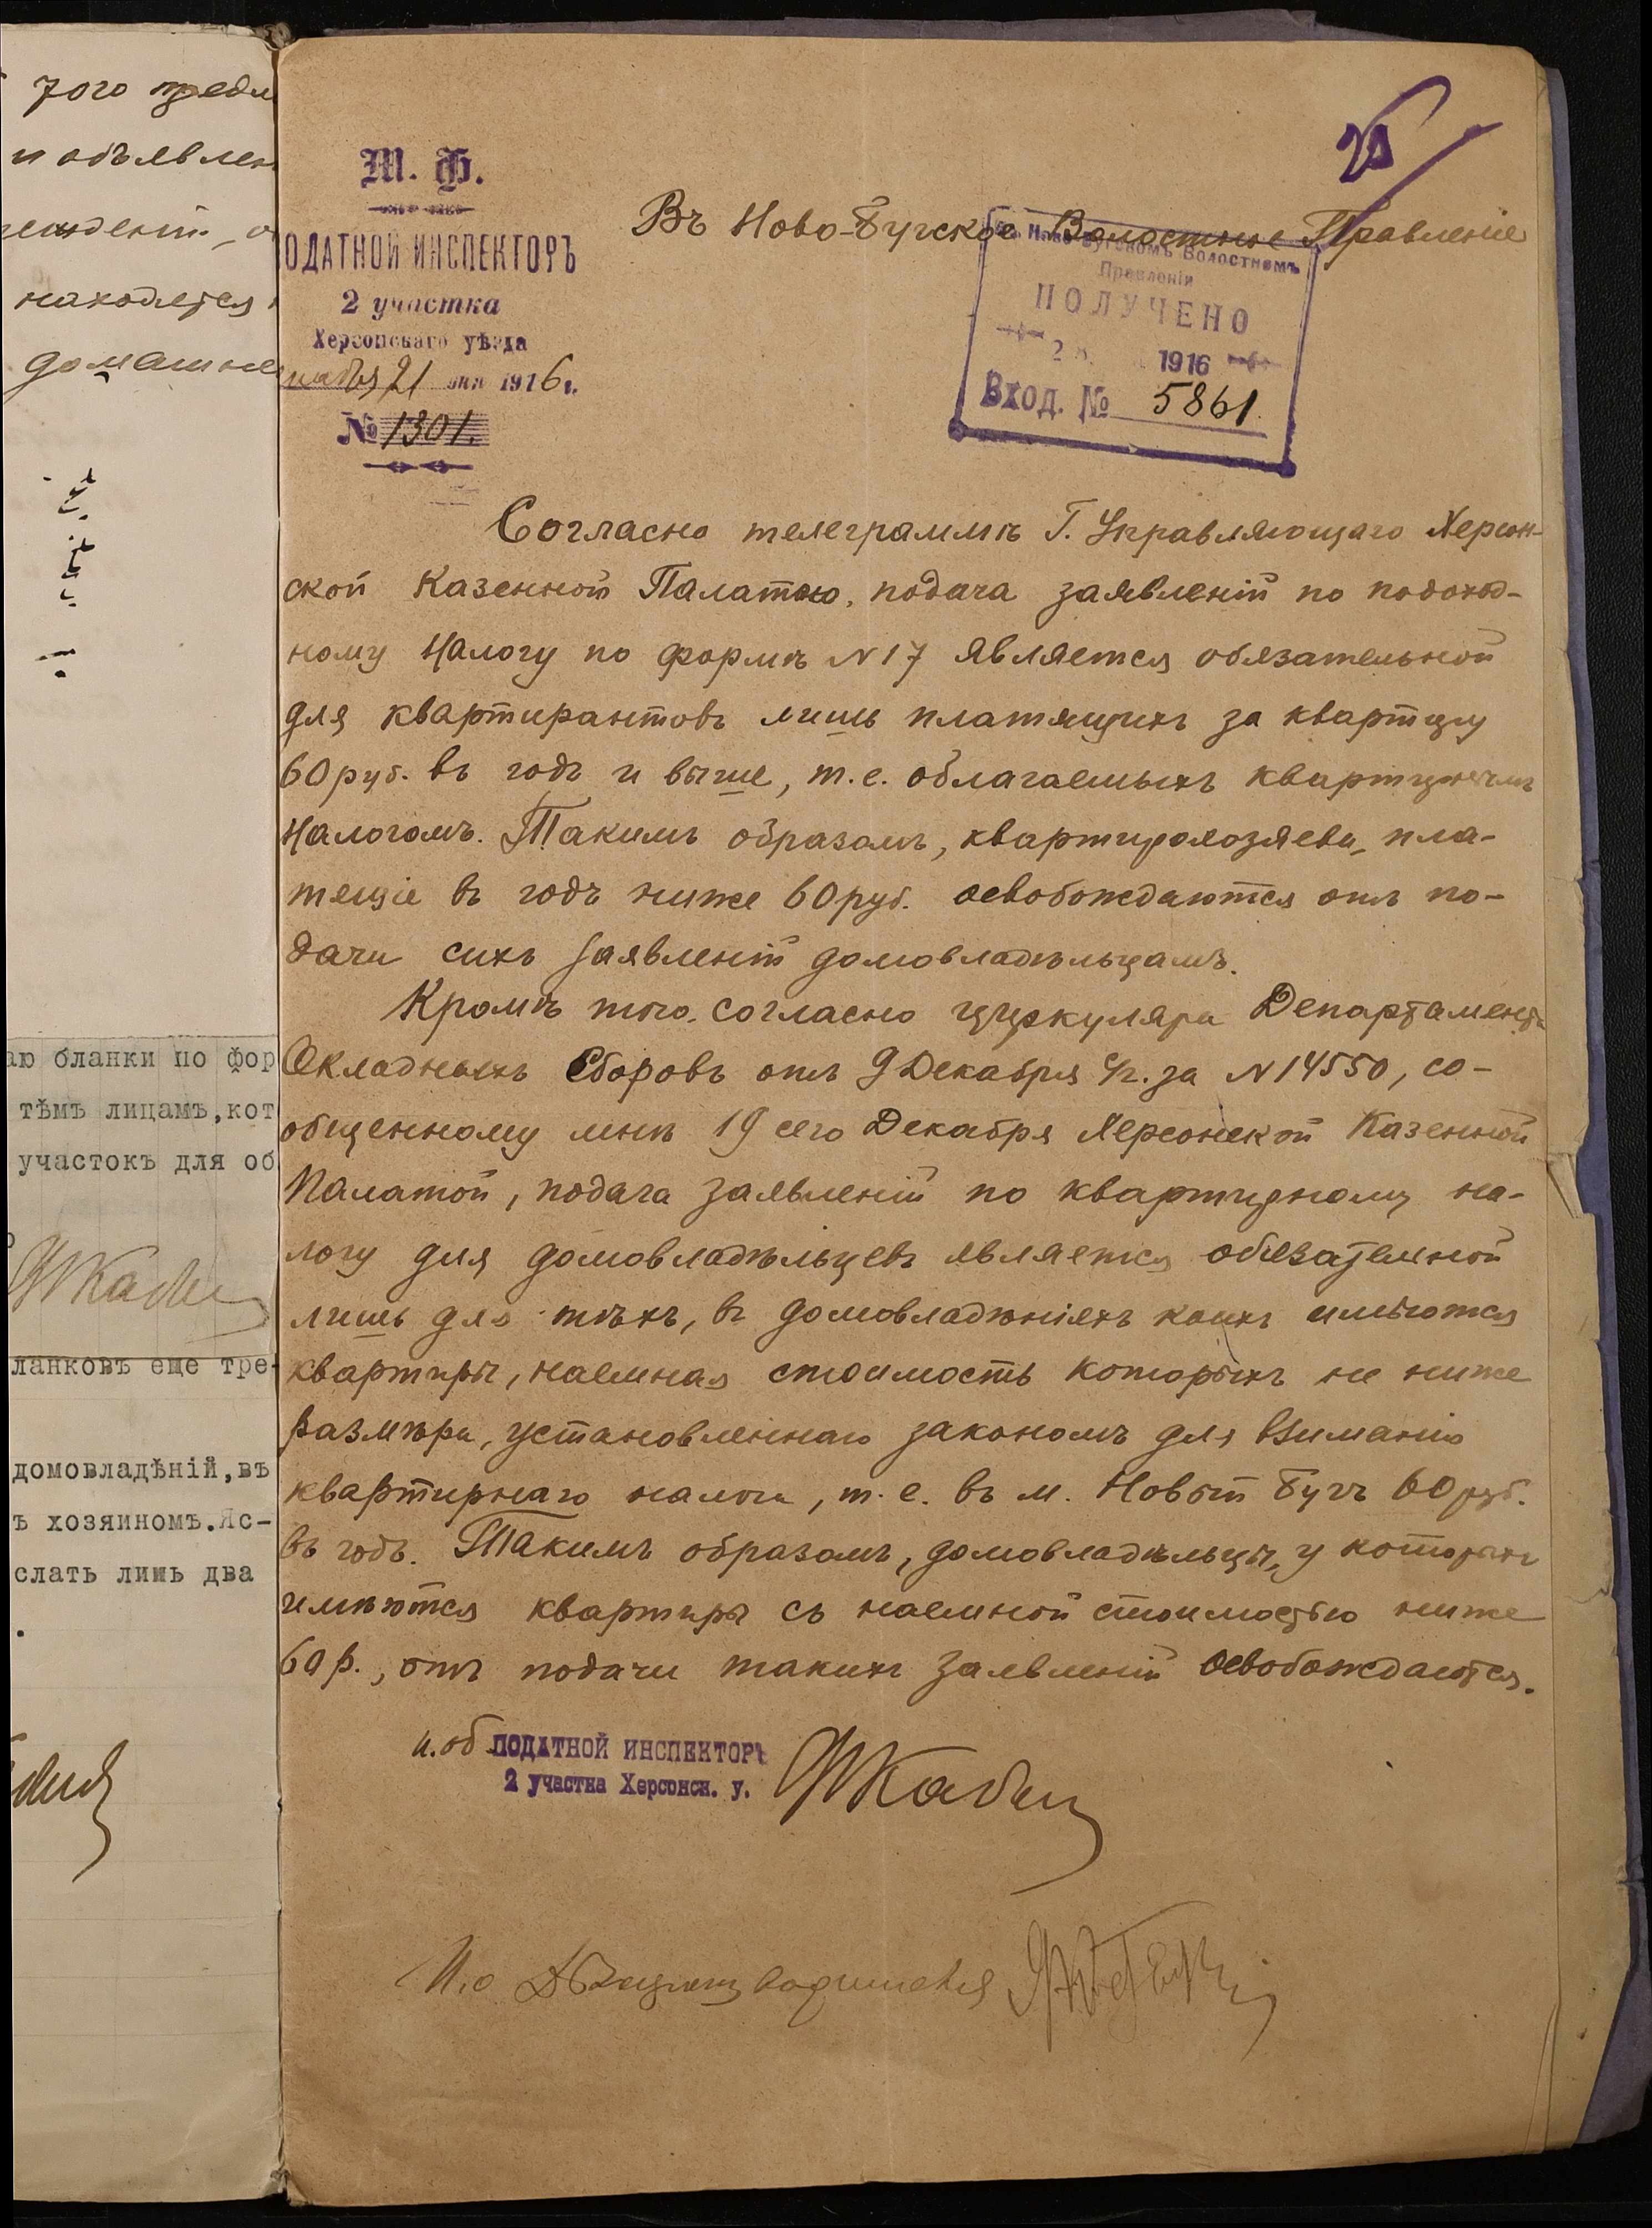 того
и объявлен
находятся
домашне
аю бланки по фор
тѣмъ лицамъ,кот
участокъ для об
ланковъ еще тре-
домовладѣній,въ
ъ хозяиномъ.Яс-
слать лишь два
М. Ф.
ПОДАТНОЙ ИНСПЕКТОРЪ
2 участка
Херсонскаго уѣзда
21 дня 1916 г.
№ 1301.
Въ Ново-Бугское Волостное Правленіе
Волостномъ
Правленіи
ПОЛУЧЕНО
1916
Вход. № 5861.
Согласно телеграммѣ Г. Управляющаго Херсон-
ской Казенной Палатою, подача заявленій по подоход-
ному налогу по формѣ N 17 является обязательной
для квартирантовъ лишь платящихъ за квартиру
60 руб. въ годъ и выше, т.е. облагаемыхъ квартирнымъ
налогомъ. Такимъ образомъ, квартирохозяева, пла-
тящіе въ годъ ниже 60 руб. освобождаются отъ по-
дачи сихъ заявленій домовладѣльцамъ.
Кромѣ того, согласно циркуляра Департамента
Окладныхъ Сборовъ отъ 9 Декабря с/г. за N 14550, со-
общенному мнѣ 19 сего Декабря Херсонской Казенной
Палатой, подача заявленій по квартирному на-
логу для домовладѣльцевъ является обязательной
лишь для тѣхъ, въ домовладѣніяхъ коихъ имѣются
квартиры, наемная стоимость которыхъ не ниже
размѣра, установленнаго закономъ для взиманія
квартирнаго налога, т.е. въ м. Новый Бугъ 60 руб.
въ годъ. Такимъ образомъ, домовладѣльцы, у которыхъ
имѣются квартиры съ наемной стоимостью ниже
60 р., отъ подачи такихъ заявленій освобождаются.
и. об ПОДАТНОЙ ИНСПЕКТОРЪ
2 участка Херсонск. у.
И.о